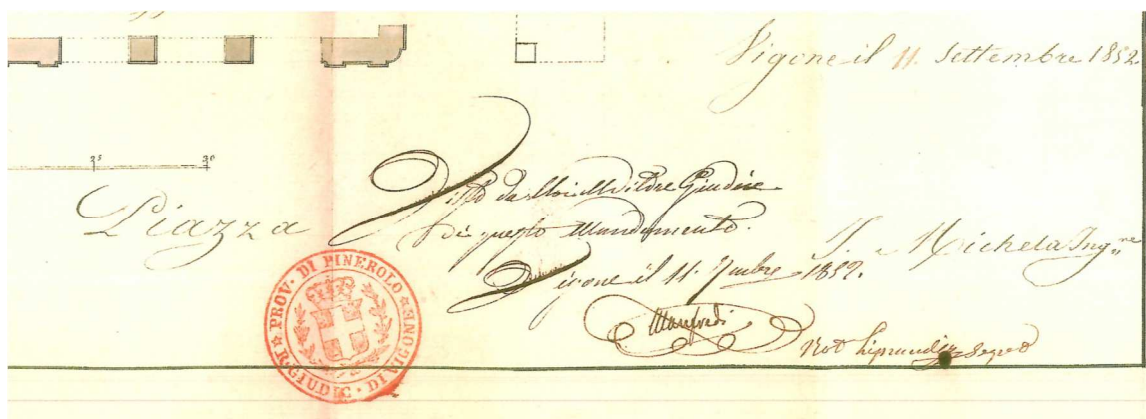 Vigone il 11. Settembre 1852
25 30
Piazza
Visto da Noi
Giudice
di questo Mandamento.
Vigone il 11. 7mbre 1852.
Manfredi
Michela Ing.re
Not
Segro
★ PROV. DI PINEROLO ★
R. GIUDIC. DI VIGONE